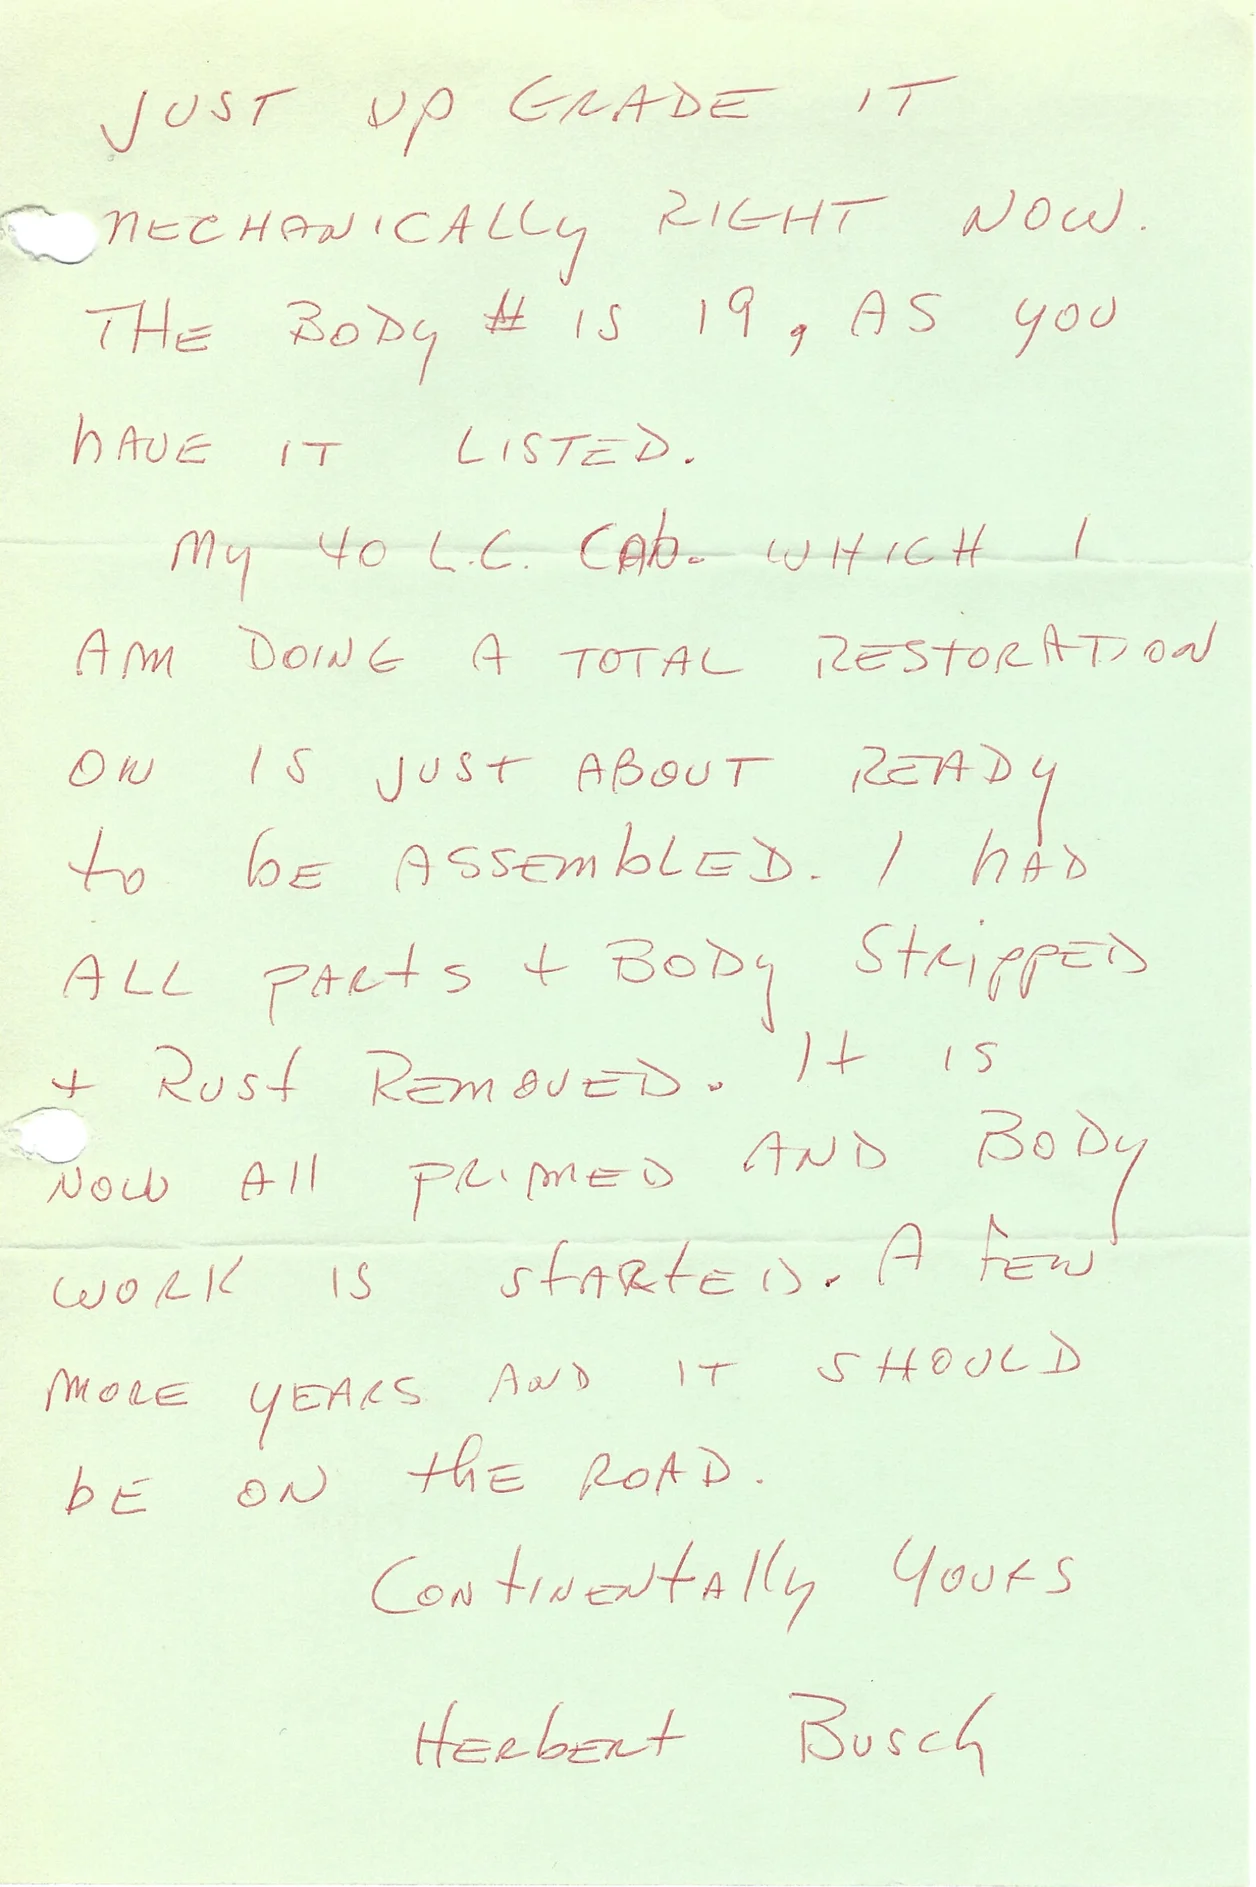 JUST UP GRADE IT
MECHANICALLY RIGHT NOW.
THE BODY # IS 19, AS YOU
HAVE IT LISTED.
MY 40 L.C. CAb. WHICH I
AM DOING A TOTAL RESTORATION
ON IS JUST ABOUT READY
to bE ASSEMbLED. I hAD
ALL PARts + BODY StRippED
+ Rust REMOVED. It IS
NOW All PRIMED AND BODY
WORK IS StARtED. A fEW
MORE YEARS AND IT SHOULD
bE ON thE ROAD.
CONtINENtAlly YOURS
HERbERt BUSCh